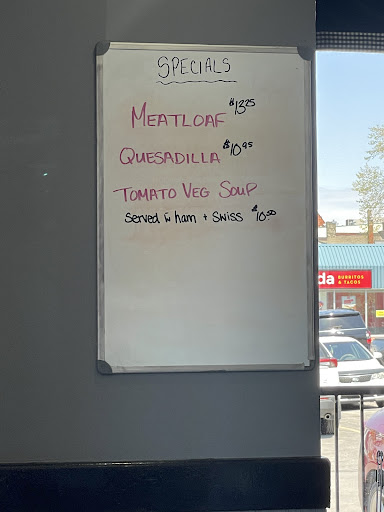 SPECIALS
MEATLOAF $13.25
QUESADILLA $10.95
TOMATO VEG SOUP
served w ham + swiss $10.50
da BURRITOS
& TACOS